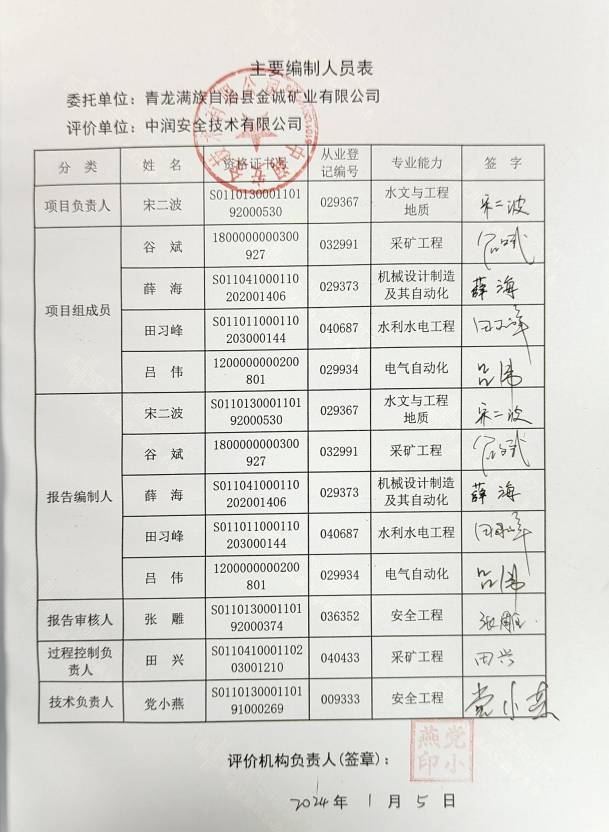 主要编制人员表
委托单位：青龙满族自治县金诚矿业有限公司
评价单位：中润安全技术有限公司
分 类 姓 名 资格证书号 从业登记编号 专业能力 签 字
项目负责人 宋二波 S011013000110192000530 029367 水文与工程地质 宋二波
项目组成员 谷 斌 1800000000300927 032991 采矿工程 谷斌
薛 海 S011041000110202001406 029373 机械设计制造及其自动化 薛海
田习峰 S011011000110203000144 040687 水利水电工程 田习峰
吕 伟 1200000000200801 029934 电气自动化 吕伟
报告编制人 宋二波 S011013000110192000530 029367 水文与工程地质 宋二波
谷 斌 1800000000300927 032991 采矿工程 谷斌
薛 海 S011041000110202001406 029373 机械设计制造及其自动化 薛海
田习峰 S011011000110203000144 040687 水利水电工程 田习峰
吕 伟 1200000000200801 029934 电气自动化 吕伟
报告审核人 张 雕 S011013000110192000374 036352 安全工程 张雕
过程控制负责人 田 兴 S011041000110203001210 040433 采矿工程 田兴
技术负责人 党小燕 S011013000110191000269 009333 安全工程 党小燕
评价机构负责人(签章)：
党小燕印
2024年 1月 5日